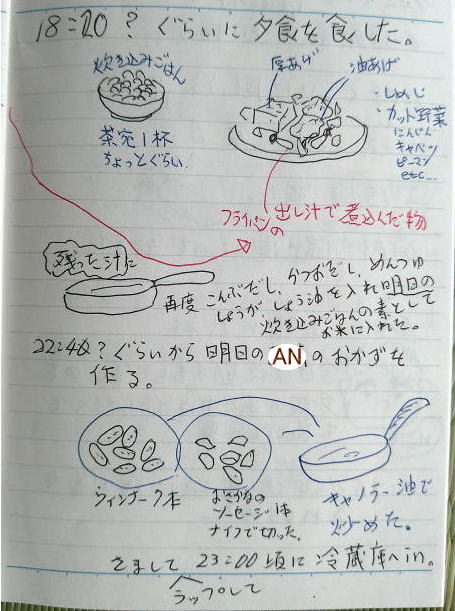 18:20?ぐらいに夕食を食した。
炊き込みごはん
茶宛1杯
ちょっとぐらい。
厚あげ
油あげ
・しめじ
・カット野菜
にんじん
キャベツ
ピーマン
etc...
フライパンの出し汁で煮込んだ物
残った汁に
再度 こんぶだし、かつおだし、めんつゆ
しょうが、しょう油を入れ明日の
炊き込みごはんの素として
お米に入れた。
22:40?ぐらいから明日の AN のおかずを
作る。
ウィンナー7本
おさかなの
ソーセージ1本
ナイフで切った。
キャノーラー油で
炒めた。
さまして 23:00頃に冷蔵庫へin。
ラップして